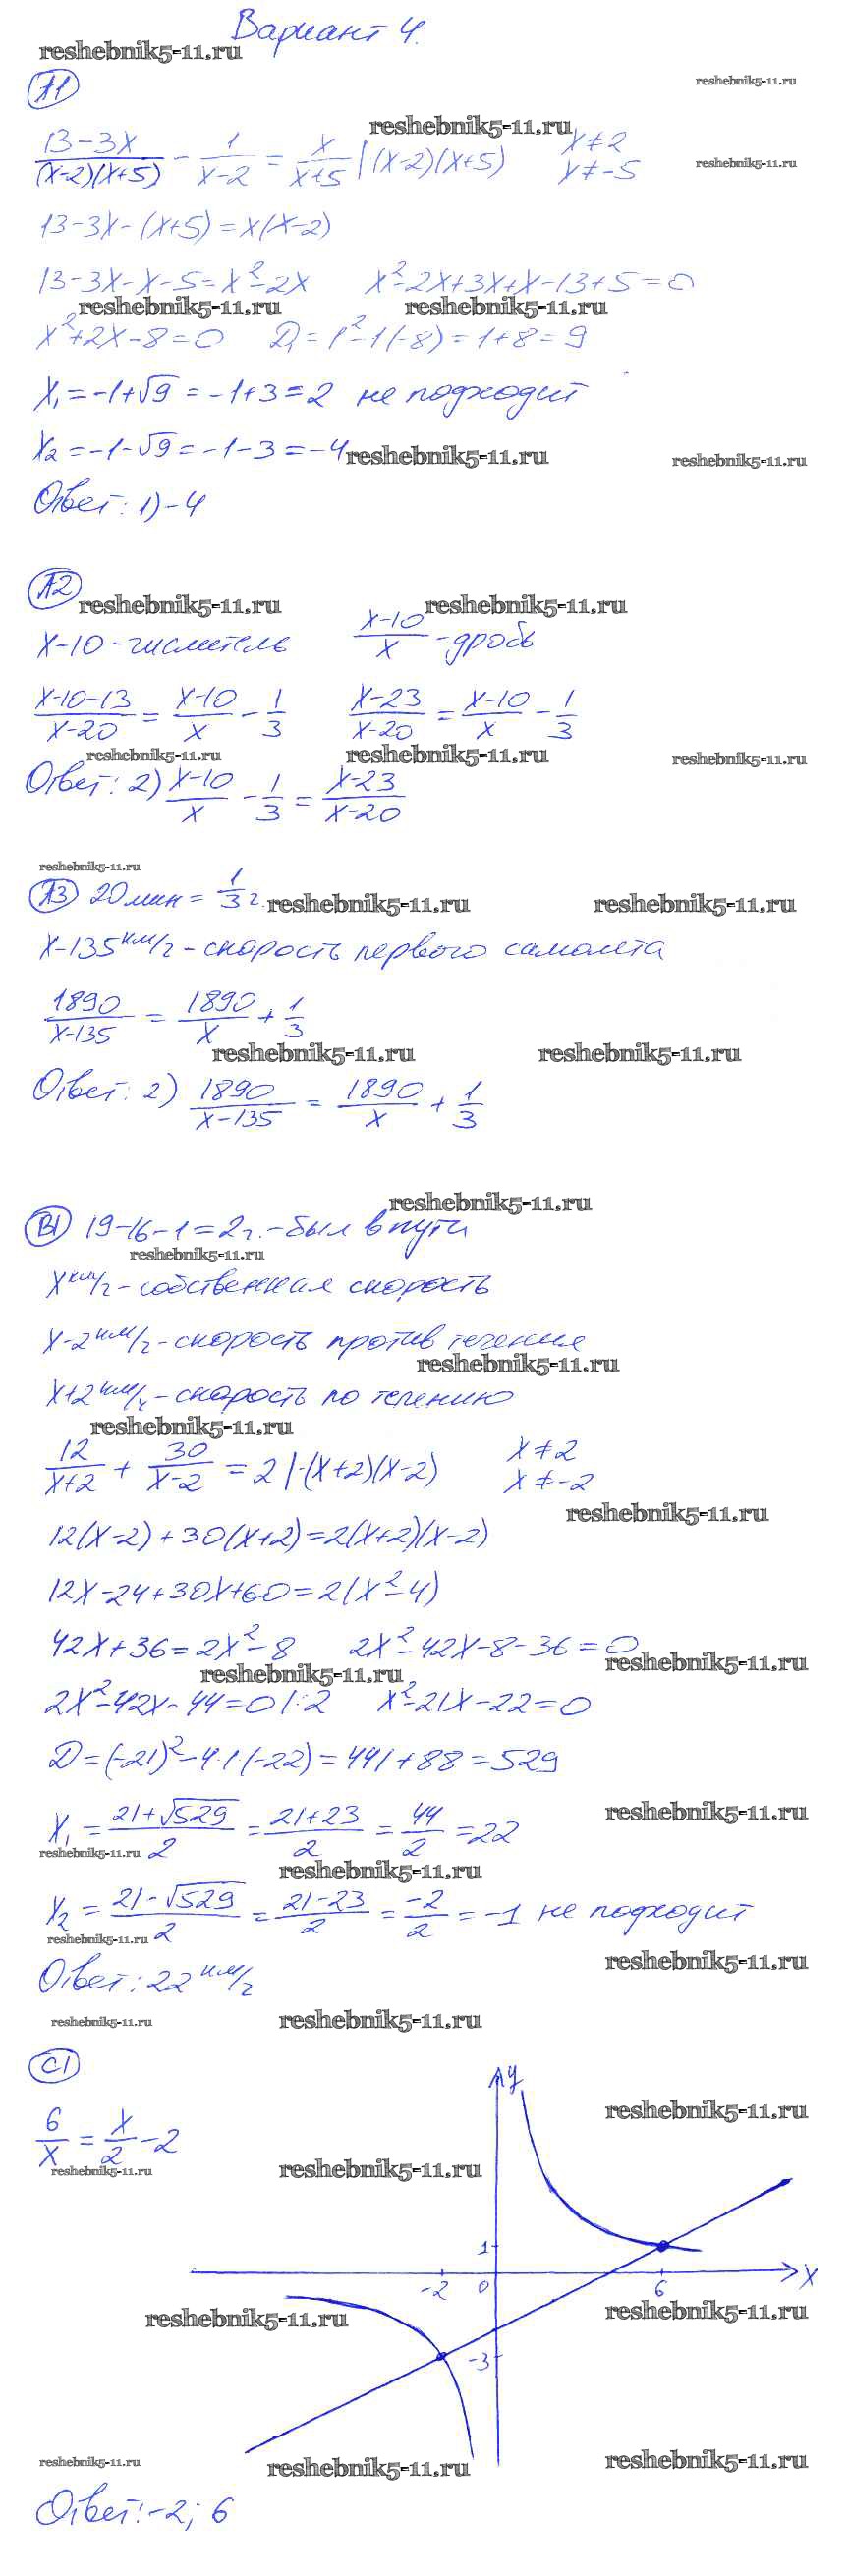 Вариант 4.
reshebnik5-11.ru
А1
reshebnik5-11.ru
reshebnik5-11.ru
(13-3x)/((x-2)(x+5)) - 1/(x-2) = x/(x+5) |(x-2)(x+5)   x≠2
x≠-5
reshebnik5-11.ru
13-3x-(x+5)=x(x-2)
13-3x-x-5=x²-2x   x²-2x+3x+x-13+5=0
reshebnik5-11.ru reshebnik5-11.ru
x²+2x-8=0   D₁=1²-1(-8)=1+8=9
x₁=-1+√9=-1+3=2 не подходит
x₂=-1-√9=-1-3=-4
reshebnik5-11.ru reshebnik5-11.ru
Ответ: 1) -4
А2
reshebnik5-11.ru reshebnik5-11.ru
x-10-числитель   (x-10)/x -дробь
(x-10-13)/(x-20) = (x-10)/x - 1/3   (x-23)/(x-20) = (x-10)/x - 1/3
reshebnik5-11.ru reshebnik5-11.ru reshebnik5-11.ru
Ответ: 2) (x-10)/x - 1/3 = (x-23)/(x-20)
reshebnik5-11.ru
А3 20 мин = 1/3 г.
reshebnik5-11.ru reshebnik5-11.ru
x-135 км/г - скорость первого самолета
1890/(x-135) = 1890/x + 1/3
reshebnik5-11.ru reshebnik5-11.ru
Ответ: 2) 1890/(x-135) = 1890/x + 1/3
reshebnik5-11.ru
В1 19-16-1=2г.-был в пути
reshebnik5-11.ru
x км/г - собственная скорость
x-2 км/г - скорость против течения
reshebnik5-11.ru
x+2 км/ч - скорость по течению
reshebnik5-11.ru
12/(x+2) + 30/(x-2) = 2 |·(x+2)(x-2)   x≠2
x≠-2
reshebnik5-11.ru
12(x-2)+30(x+2)=2(x+2)(x-2)
12x-24+30x+60=2(x²-4)
42x+36=2x²-8   2x²-42x-8-36=0
reshebnik5-11.ru reshebnik5-11.ru
2x²-42x-44=0 |:2   x²-21x-22=0
D=(-21)²-4·1·(-22)=441+88=529
x₁ = (21+√529)/2 = (21+23)/2 = 44/2 = 22
reshebnik5-11.ru
reshebnik5-11.ru
reshebnik5-11.ru
x₂ = (21-√529)/2 = (21-23)/2 = -2/2 = -1 не подходит
reshebnik5-11.ru
reshebnik5-11.ru
Ответ: 22 км/г
reshebnik5-11.ru reshebnik5-11.ru
С1
y
reshebnik5-11.ru
6/x = x/2 - 2
reshebnik5-11.ru reshebnik5-11.ru
1
-2 0 6 x
reshebnik5-11.ru reshebnik5-11.ru
-3
reshebnik5-11.ru reshebnik5-11.ru reshebnik5-11.ru
Ответ: -2; 6